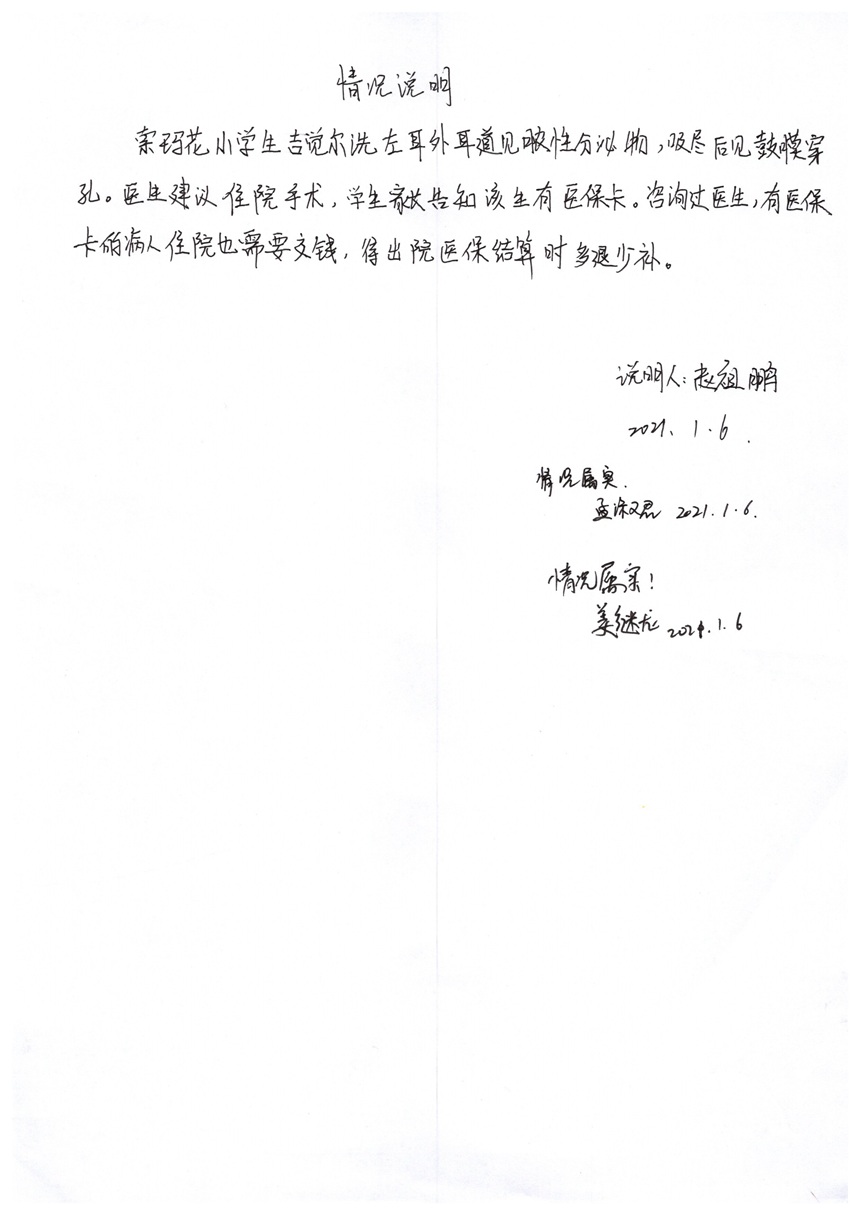 情况说明
索玛花小学生吉觉尔洗左耳外耳道见脓性分泌物,吸尽后见鼓膜穿
孔。医生建议住院手术,学生家长告知该生有医保卡。咨询过医生,有医保
卡的病人住院也需要交钱,待出院医保结算时多退少补。
说明人:赵祖鹏
2021.1.6.
情况属实.
孟淑君 2021.1.6.
情况属实!
姜继龙 2021.1.6